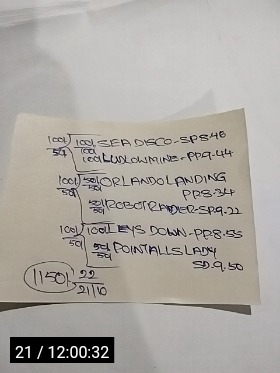 100/ 100/ SEADISCO-SP8.46
5d 100
100/ LUDLOWMINE-PP.9-44
100/ 50/ ORLANDO LANDING
5d 5d PP.8-34
50/ ROBOTRADER-SP.9.22
5d
100/ 100/ LEYS DOWN-PP.8-55
5d 50/ POINTALLS LADY
5d SD.9.50
1150/- 22
21/10
21 / 12:00:32